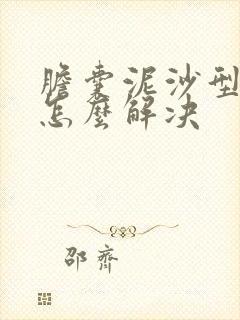 膽囊泥沙型
怎麼解决
邵齋